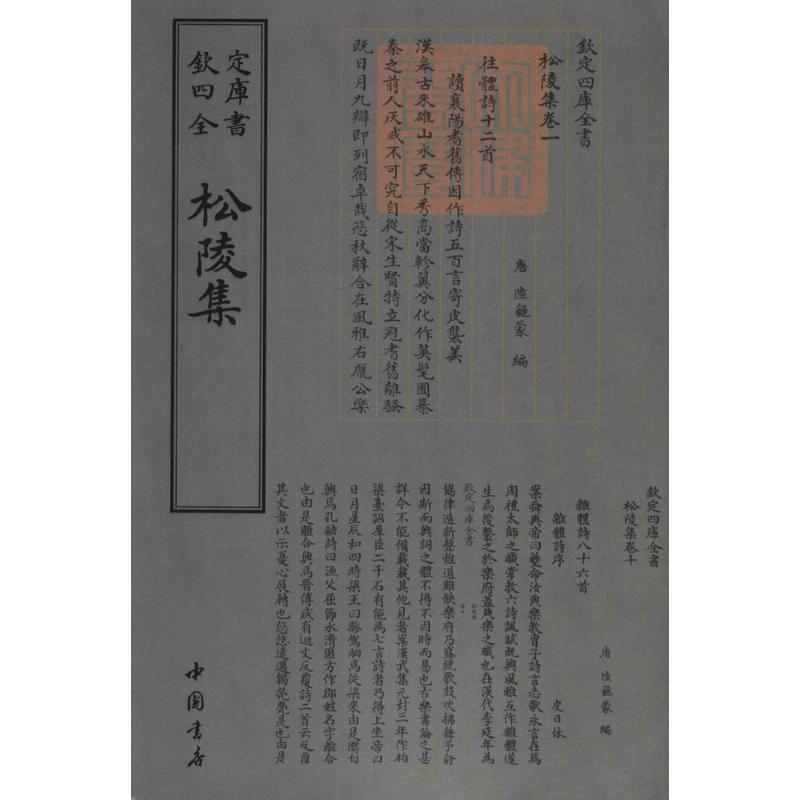 欽定四庫全書
松陵集
中國書店
欽定四庫全書
松陵集卷一
唐 陸龜蒙 編
往體詩十二首
讀襄陽耆舊傳因作詩五百言寄皮襲美
漢皋古來雄山水天下秀高當軫翼分化作英髦囿暴
秦之前人灰滅不可究自從宋生賢特立冠耆舊離騷
既日月九辯即列宿卓哉悲秋辭合在風雅右龐公樂
欽定四庫全書
松陵集卷十
唐 陸龜蒙 編
雜體詩八十六首
雜體詩序
皮日休
案舜典帝曰夔命汝典樂教胄子詩言志歌永言在焉
周禮太師之職掌教六詩諷賦既興風雅互作雜體遂
生焉後繫之於樂府蓋典樂之職也在漢代李延年為
欽定四庫全書
協律造新聲雅道雖缺樂府乃盛鐃歌鼓吹拂舞予俞
因斯而興詞之體不得不因時而易也古樂書論之甚
詳今不能備載載其他見者案漢武集元封三年作柏
梁臺詔羣臣二千石有能為七言詩者乃得上坐帝曰
日月星辰和四時梁王曰驂駕駟馬從梁來由是聯句
興焉孔融詩曰漁父屈節水潛匿方作郡姓名字離合
也由是離合興焉晉傅咸有迴文反覆詩二首云反覆
其文者以示憂心展轉也悠悠遠邁獨煢煢是也由是